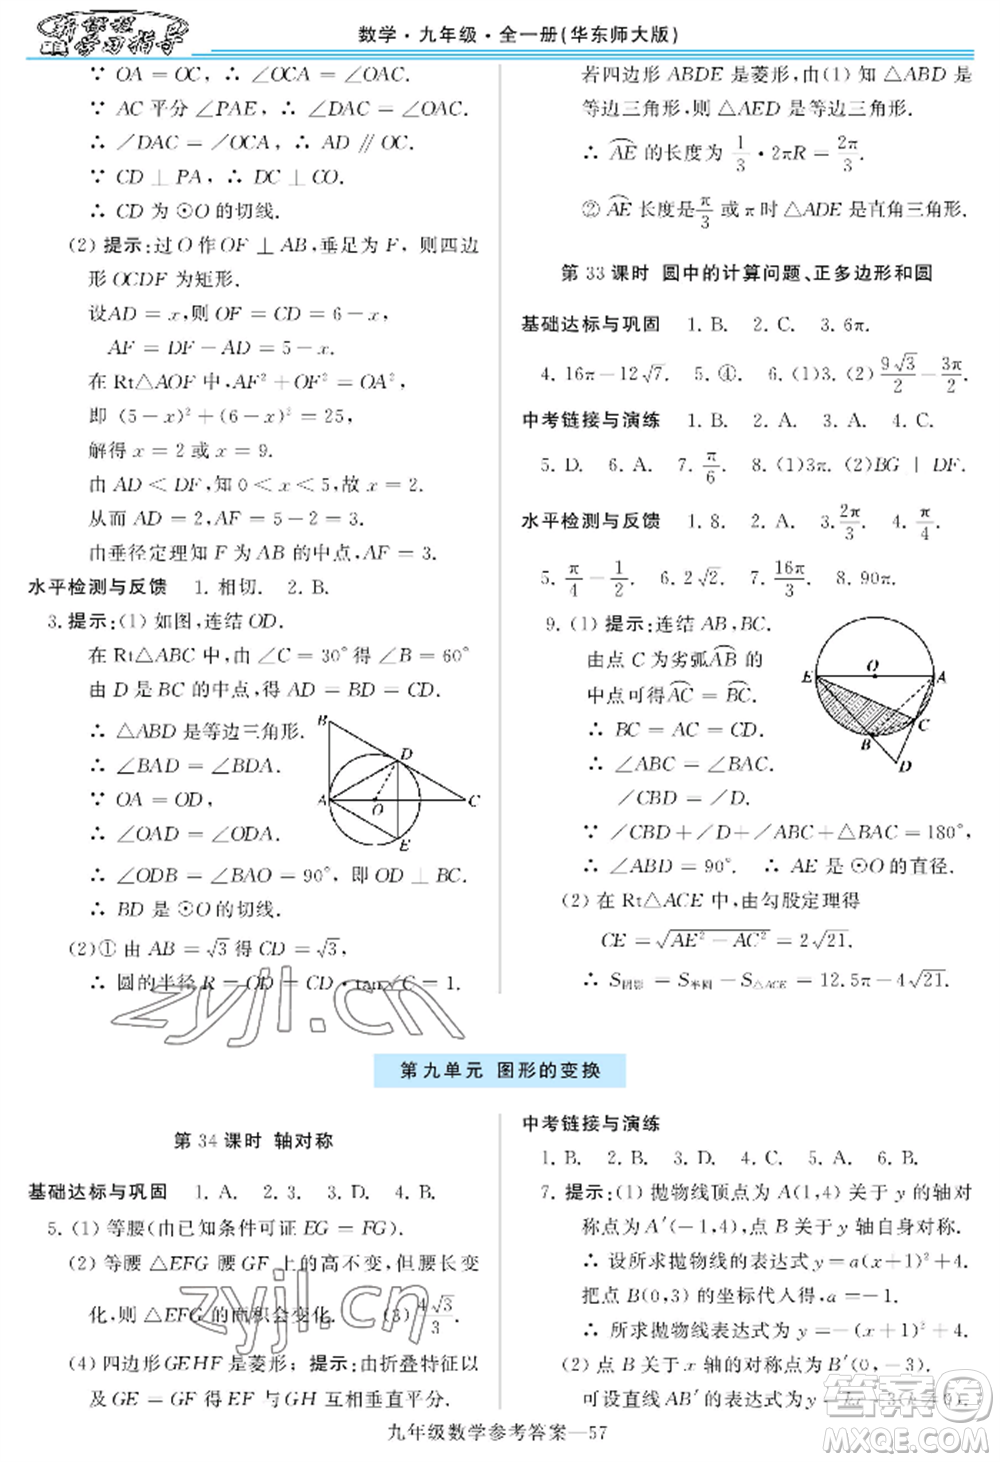 新课程
学习指导
数学·九年级·全一册(华东师大版)
∵ OA=OC, ∴ ∠OCA=∠OAC.
∵ AC 平分 ∠PAE, ∴ ∠DAC=∠OAC.
∴ ∠DAC=∠OCA, ∴ AD∥OC.
∵ CD⊥PA, ∴ DC⊥CO.
∴ CD 为⊙O的切线.
(2) 提示:过O作OF⊥AB,垂足为F, 则四边
形OCDF为矩形.
设AD=x,则OF=CD=6-x,
AF=DF-AD=5-x.
在 Rt△AOF 中,AF²+OF²=OA²,
即 (5-x)²+(6-x)²=25,
解得 x=2 或 x=9.
由 AD<DF,知 0<x<5,故 x=2.
从而 AD=2,AF=5-2=3.
由垂径定理知 F 为 AB 的中点,AF=3.
水平检测与反馈 1. 相切. 2. B.
3. 提示:(1) 如图,连结OD.
在 Rt△ABC 中, ∠C=30°得∠B=60°
由 D 是 BC 的中点,得 AD=BD=CD.
∴ △ABD 是等边三角形.
∴ ∠BAD=∠BDA.
∵ OA=OD,
∴ ∠OAD=∠ODA.
∴ ∠ODB=∠BAO=90°,即 OD⊥BC.
∴ BD 是⊙O的切线.
B D A O C E
(2)① 由 AB=√3 得 CD=√3,
∴ 圆的半径 R=OD=CD·tan∠C=1.
若四边形 ABDE 是菱形,由(1)知△ABD是
等边三角形,则 △AED 是等边三角形.
∴ AE 的长度为 1/3·2πR=2π/3.
② AE 长度是π/3或π时△ADE是直角三角形.
第 33 课时 圆中的计算问题、正多边形和圆
基础达标与巩固 1. B. 2. C. 3. 6π.
4. 16π-12√7. 5. ④. 6. (1)3. (2) 9√3/2-3π/2.
中考链接与演练 1. B. 2. A. 3. A. 4. C.
5. D. 6. A. 7. π/6. 8. (1)3π. (2)BG | DF.
水平检测与反馈 1. 8. 2. A. 3. 2π/3. 4. π/4.
5. π/4-1/2. 6. 2√2. 7. 16π/3. 8. 90π.
9. (1) 提示:连结 AB,BC.
由点 C 为劣弧AB 的
中点可得AC=BC.
∴ BC=AC=CD.
∴ ∠ABC=∠BAC.
∠CBD=∠D.
E O A C B D
∵ ∠CBD+∠D+∠ABC+△BAC=180°,
∴ ∠ABD=90°. ∴ AE 是⊙O的直径.
(2) 在 Rt△ACE 中,由勾股定理得
CE=√AE²-AC²=2√21.
∴ S阴影=S半圆-S△ACE=12.5π-4√21.
第九单元 图形的变换
第 34 课时 轴对称
基础达标与巩固 1. A. 2. 3. 3. D. 4. B.
5. (1) 等腰(由已知条件可证EG=FG).
(2) 等腰 △EFG 腰 GF 上的高不变,但腰长变
化,则 △EFG 的面积会变化. (3) 4√3/3.
(4) 四边形GEHF是菱形; 提示:由折叠特征以
及 GE=GF 可得 EF 与 GH 互相垂直平分.
中考链接与演练
1. B. 2. B. 3. D. 4. C. 5. A. 6. B.
7. 提示:(1) 抛物线顶点为 A(1,4) 关于 y 的轴对
称点为A′(-1,4),点 B 关于 y 轴自身对称.
∴ 设所求抛物线的表达式为 y=a(x+1)²+4.
把点B(0,3)的坐标代人得,a=-1.
∴ 所求抛物线表达式为 y=-(x+1)²+4.
(2) 点 B 关于 x 轴的对称点为B′(0,-3).
可设直线 AB′的表达式为 y=kx-3
zyjl.cn
zyjl.cn
答案圈
九年级数学参考答案—57